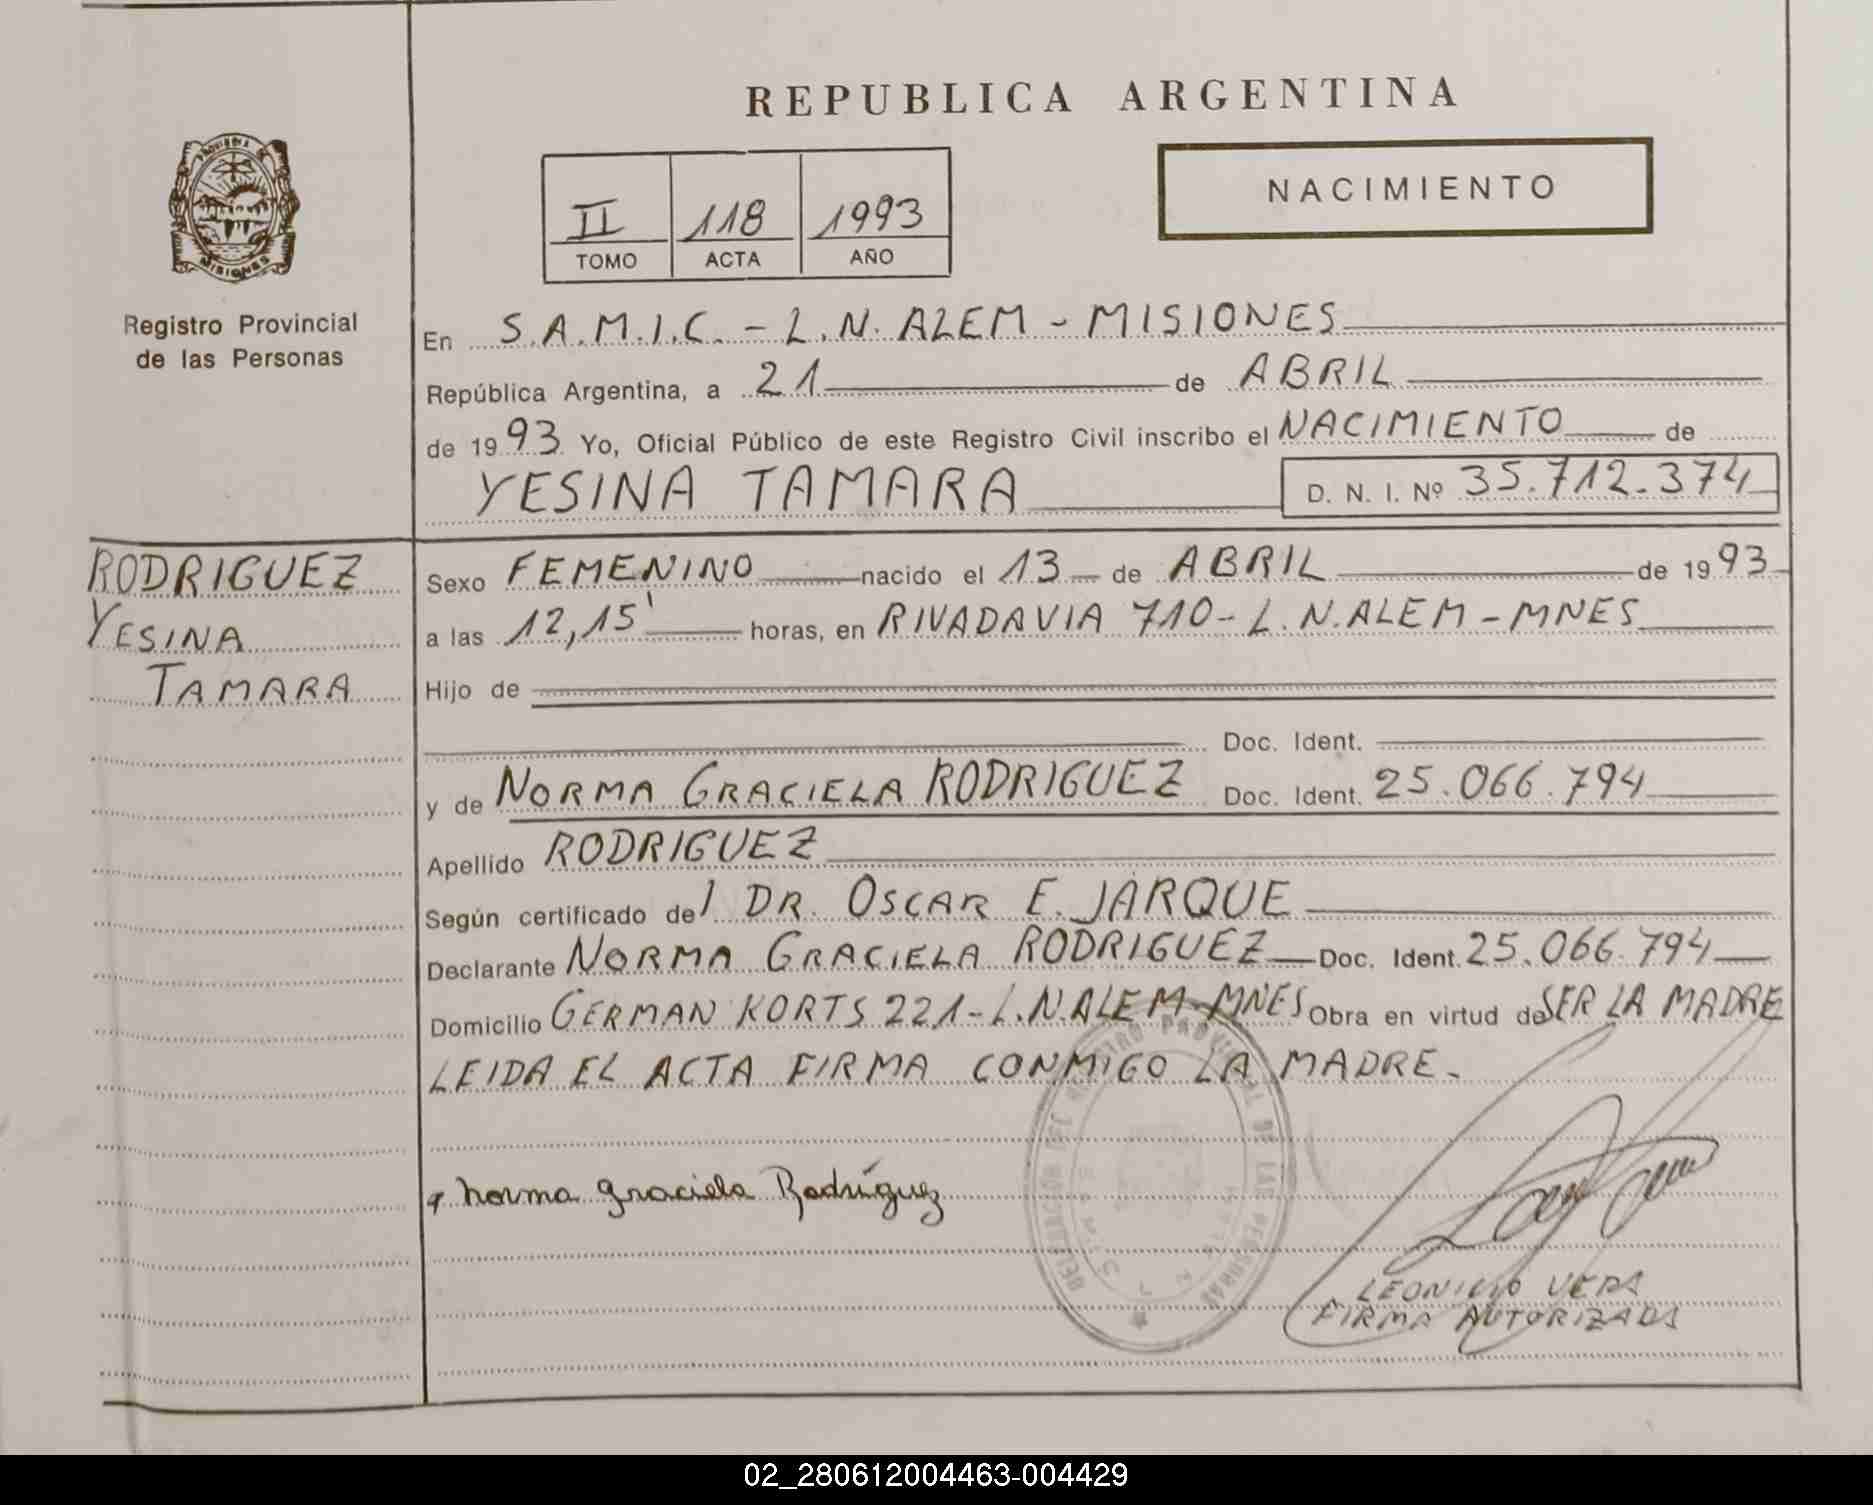 REPUBLICA ARGENTINA
NACIMIENTO
II 118 1993
TOMO ACTA AÑO
PROVINCIA DE
MISIONES
Registro Provincial
de las Personas
En S.A.M.I.C. - L.N. ALEM - MISIONES
República Argentina, a 21 de ABRIL
de 1993 Yo, Oficial Público de este Registro Civil inscribo el NACIMIENTO de
YESINA TAMARA D. N. I. Nº 35.712.374
RODRIGUEZ
YESINA
TAMARA
Sexo FEMENINO nacido el 13 de ABRIL de 1993
a las 12,15' horas, en RIVADAVIA 710 - L.N.ALEM - MNES
Hijo de
Doc. Ident.
y de NORMA GRACIELA RODRIGUEZ Doc. Ident. 25.066.794
Apellido RODRIGUEZ
Según certificado del DR. OSCAR E. JARQUE
Declarante NORMA GRACIELA RODRIGUEZ Doc. Ident. 25.066.794
Domicilio GERMAN KORTS 221 - L.N.ALEM - MNES Obra en virtud de SER LA MADRE
LEIDA EL ACTA FIRMA CONMIGO LA MADRE.
DELEGACION DEL REGISTRO PROVINCIAL DE LAS PERSONAS
Norma Graciela Rodríguez
LEONICIO VERA
FIRMA AUTORIZADA
02_280612004463-004429